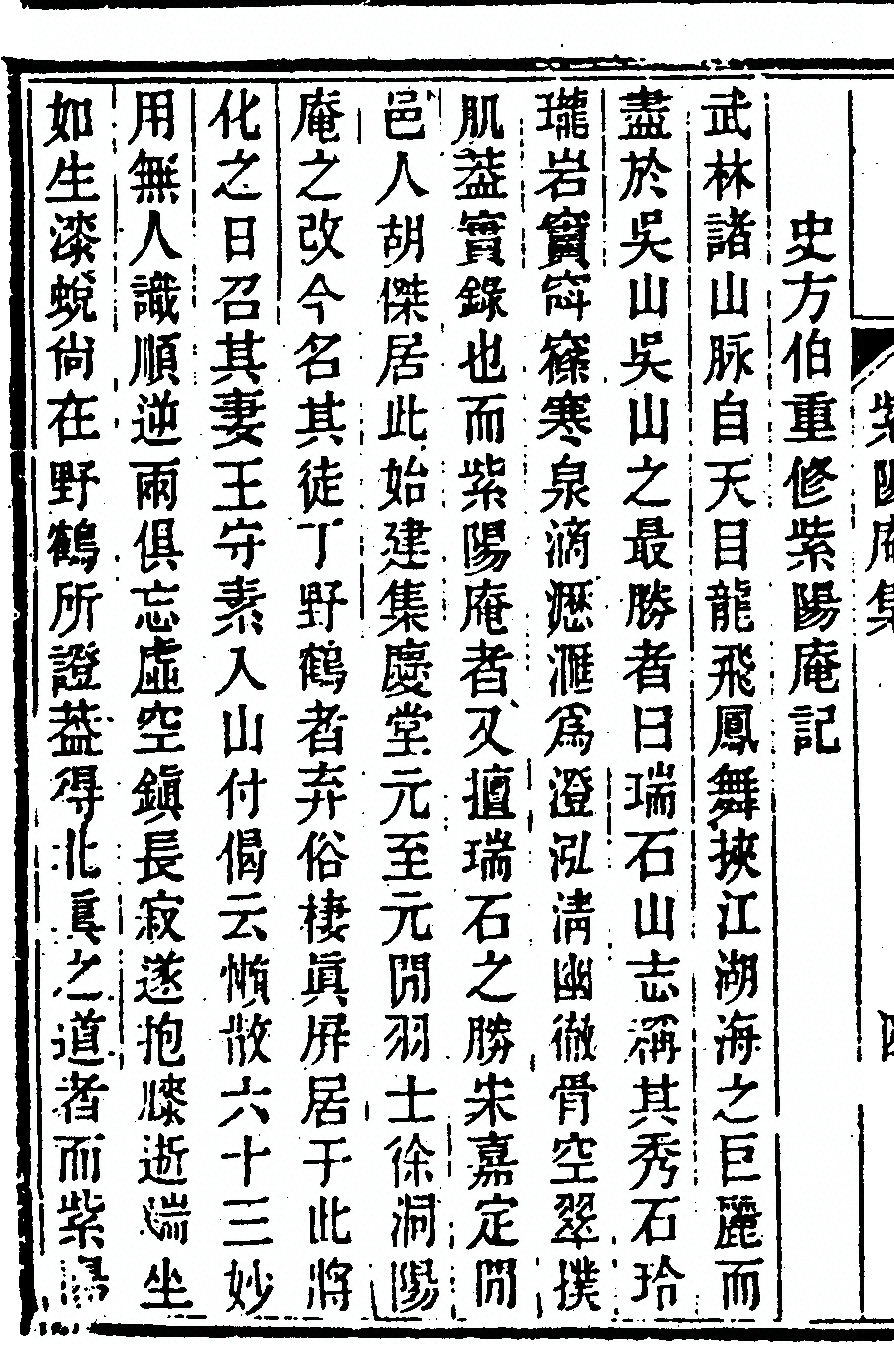 紫陽庵集
四
史方伯重修紫陽庵記
武林諸山脉自天目龍飛鳳舞挾江湖海之巨麗而
盡於吳山吳山之最勝者曰瑞石山志稱其秀石玲
瓏岩竇窈窱寒泉滴瀝滙爲澄泓淸幽徹骨空翠撲
肌葢實錄也而紫陽庵者又擅瑞石之勝宋嘉定閒
邑人胡傑居此始建集慶堂元至元閒羽士徐洞陽
庵之改今名其徒丁野鶴者弃俗棲眞屏居于此將
化之日召其妻王守素入山付偈云懶散六十三妙
用無人識順逆兩俱忘虛空鎭長寂遂抱膝逝端坐
如生漆蛻尙在野鶴所證葢得北眞之道者而紫陽